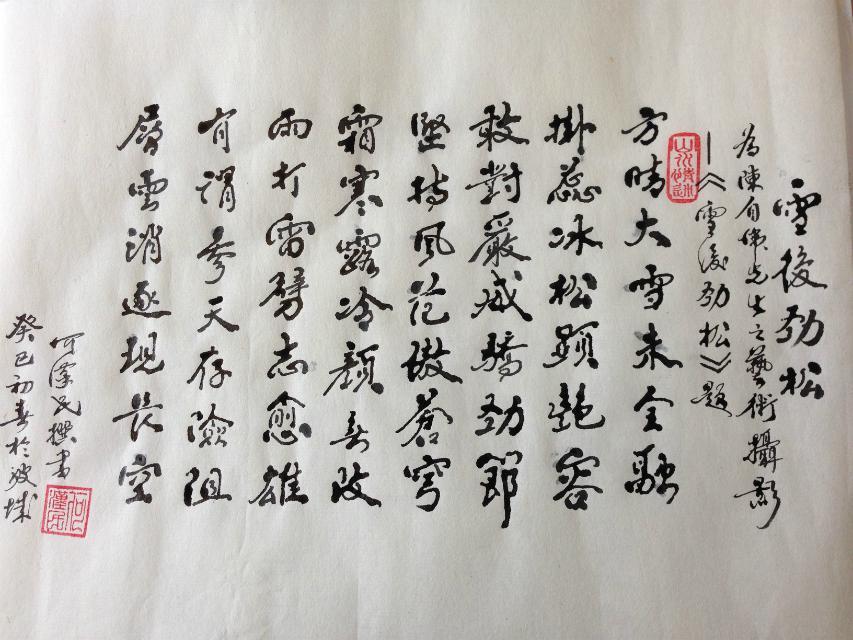 雪後劲松
為陳自偉先生之藝術攝影
—《雪後劲松》題
方晴大雪未全融
掛蕊冰松顯艷容
敢對嚴威驕劲節
堅持風范傲蒼穹
霜寒露冷顏無改
雨打雷劈志愈雄
有謂參天存險阻
層雲消逐現長空
何漢民撰書
癸巳初春於波城
何漢民